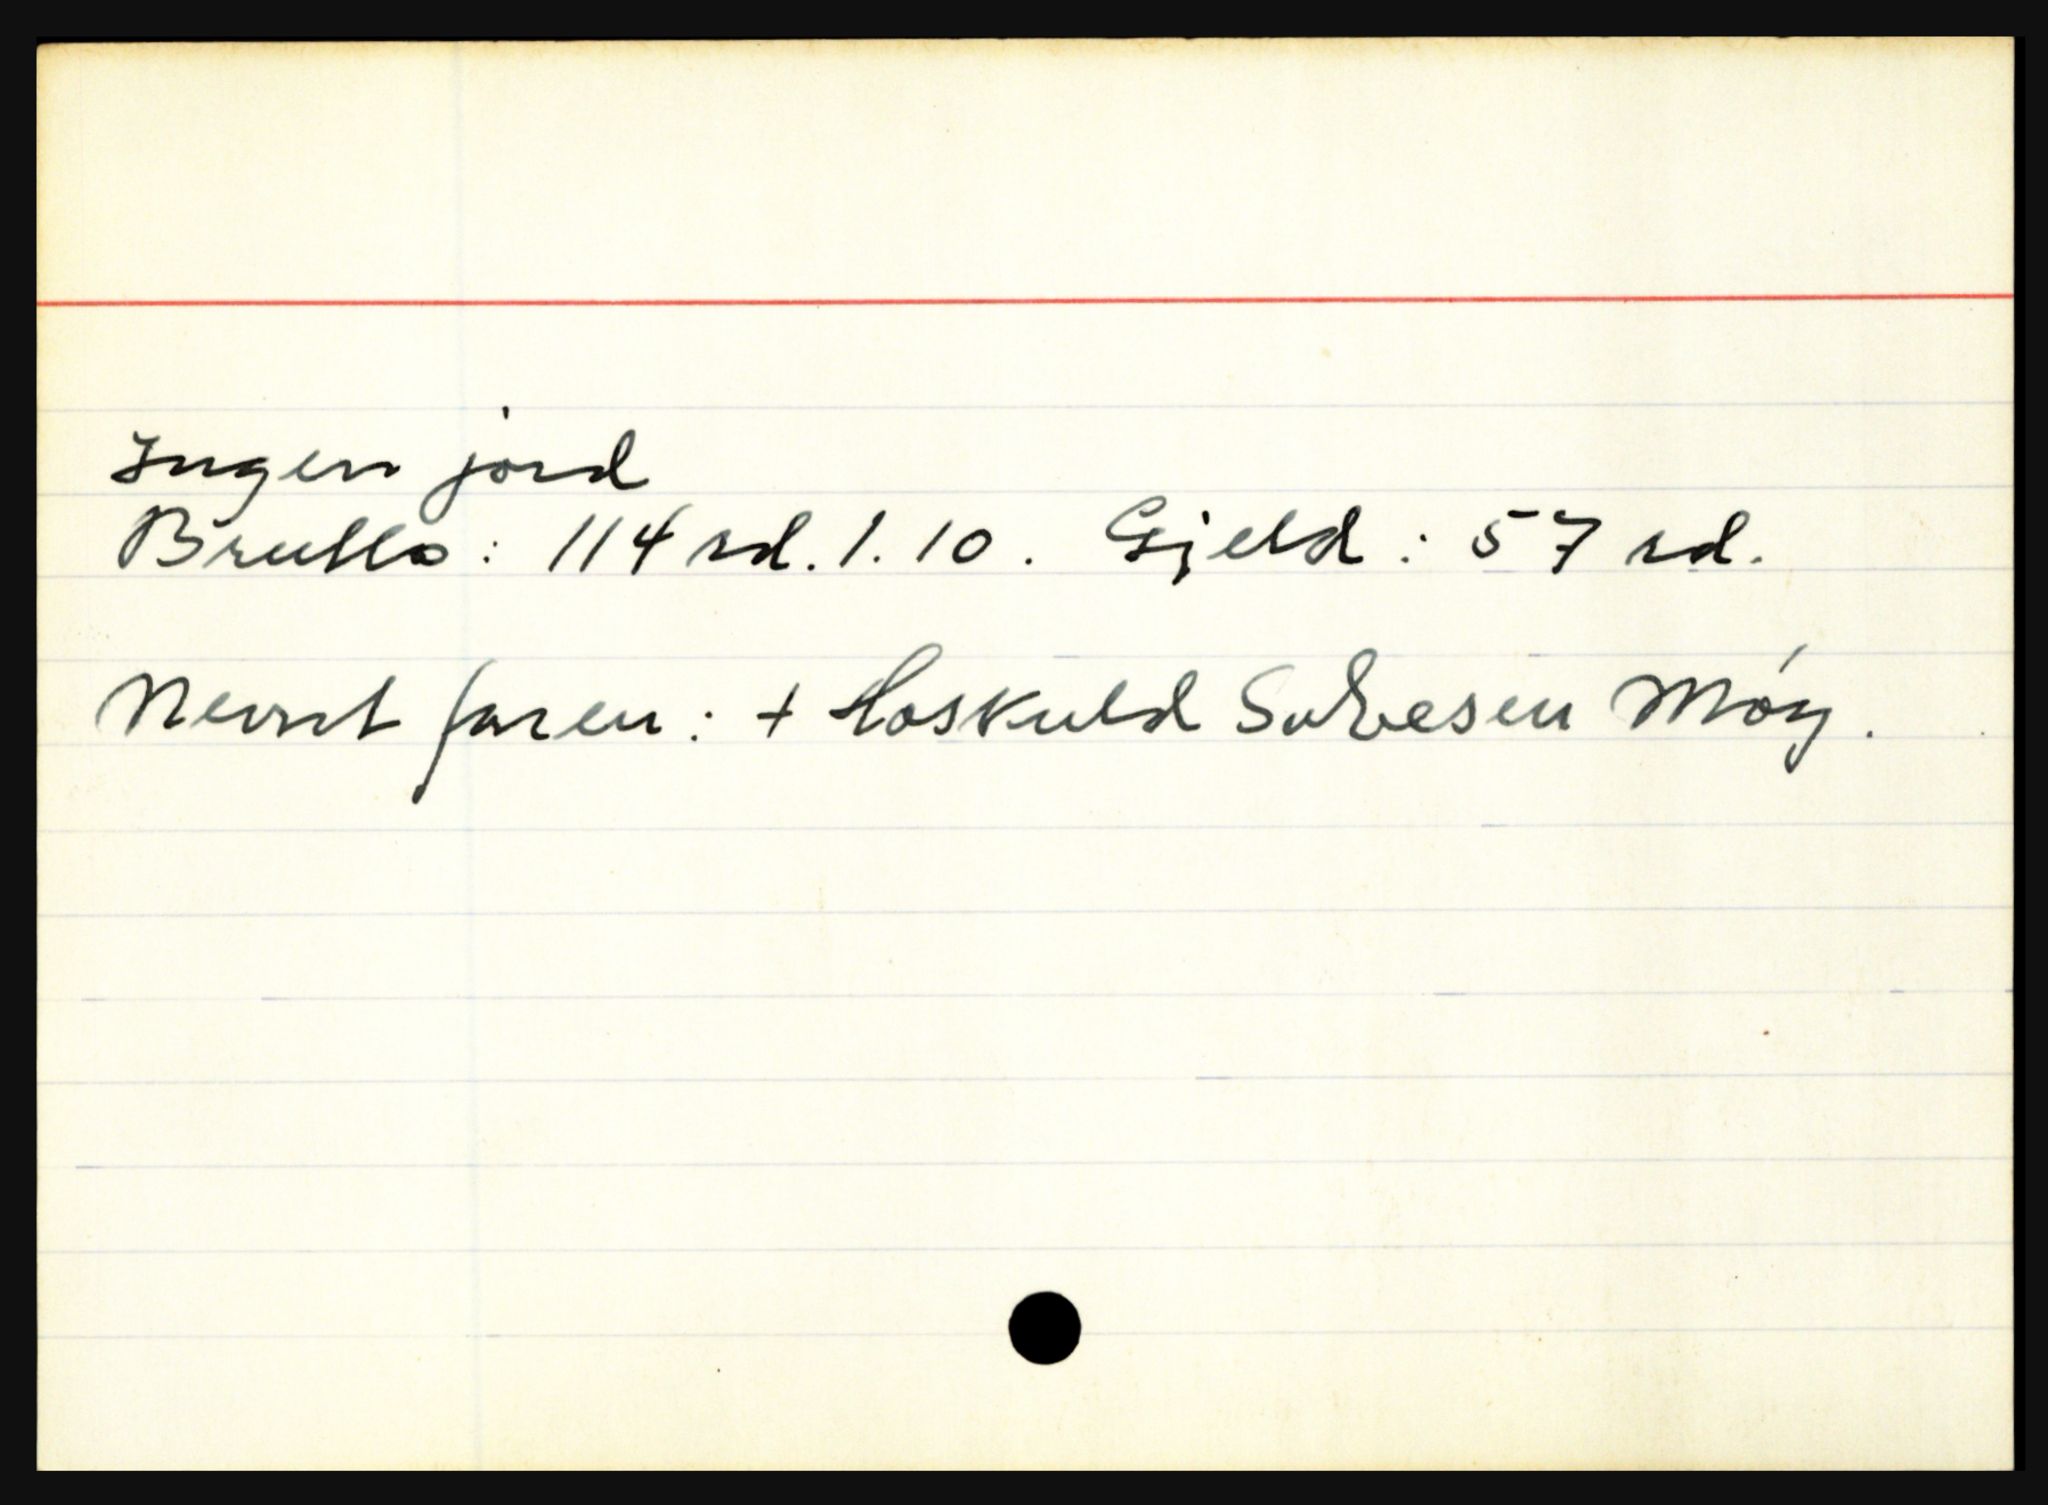 Ingen jord
Brutto: 114 rd. 1. 10. Gjeld: 57 rd.
Nevnt faren: + Hoskuld Solvesen Møy.